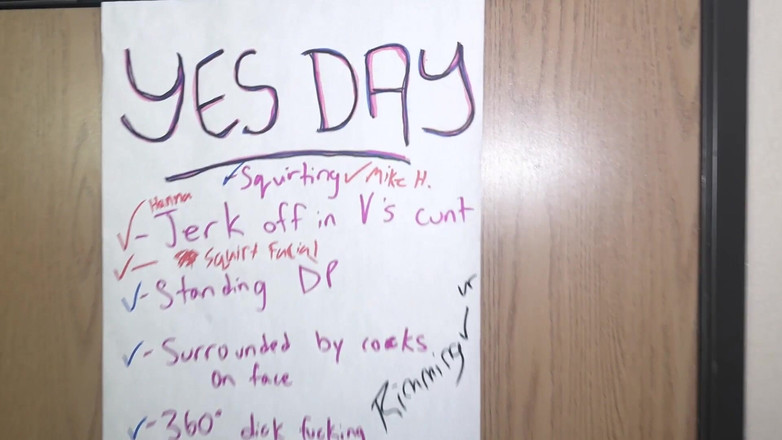 YES DAY
✓Squirting ✓Mike H.
Hanna
✓- Jerk off in V's cunt
✓- Squirt Facial
✓- Standing DP
✓- Surrounded by cocks
on face
Rimming ✓
✓- 360° dick fucking